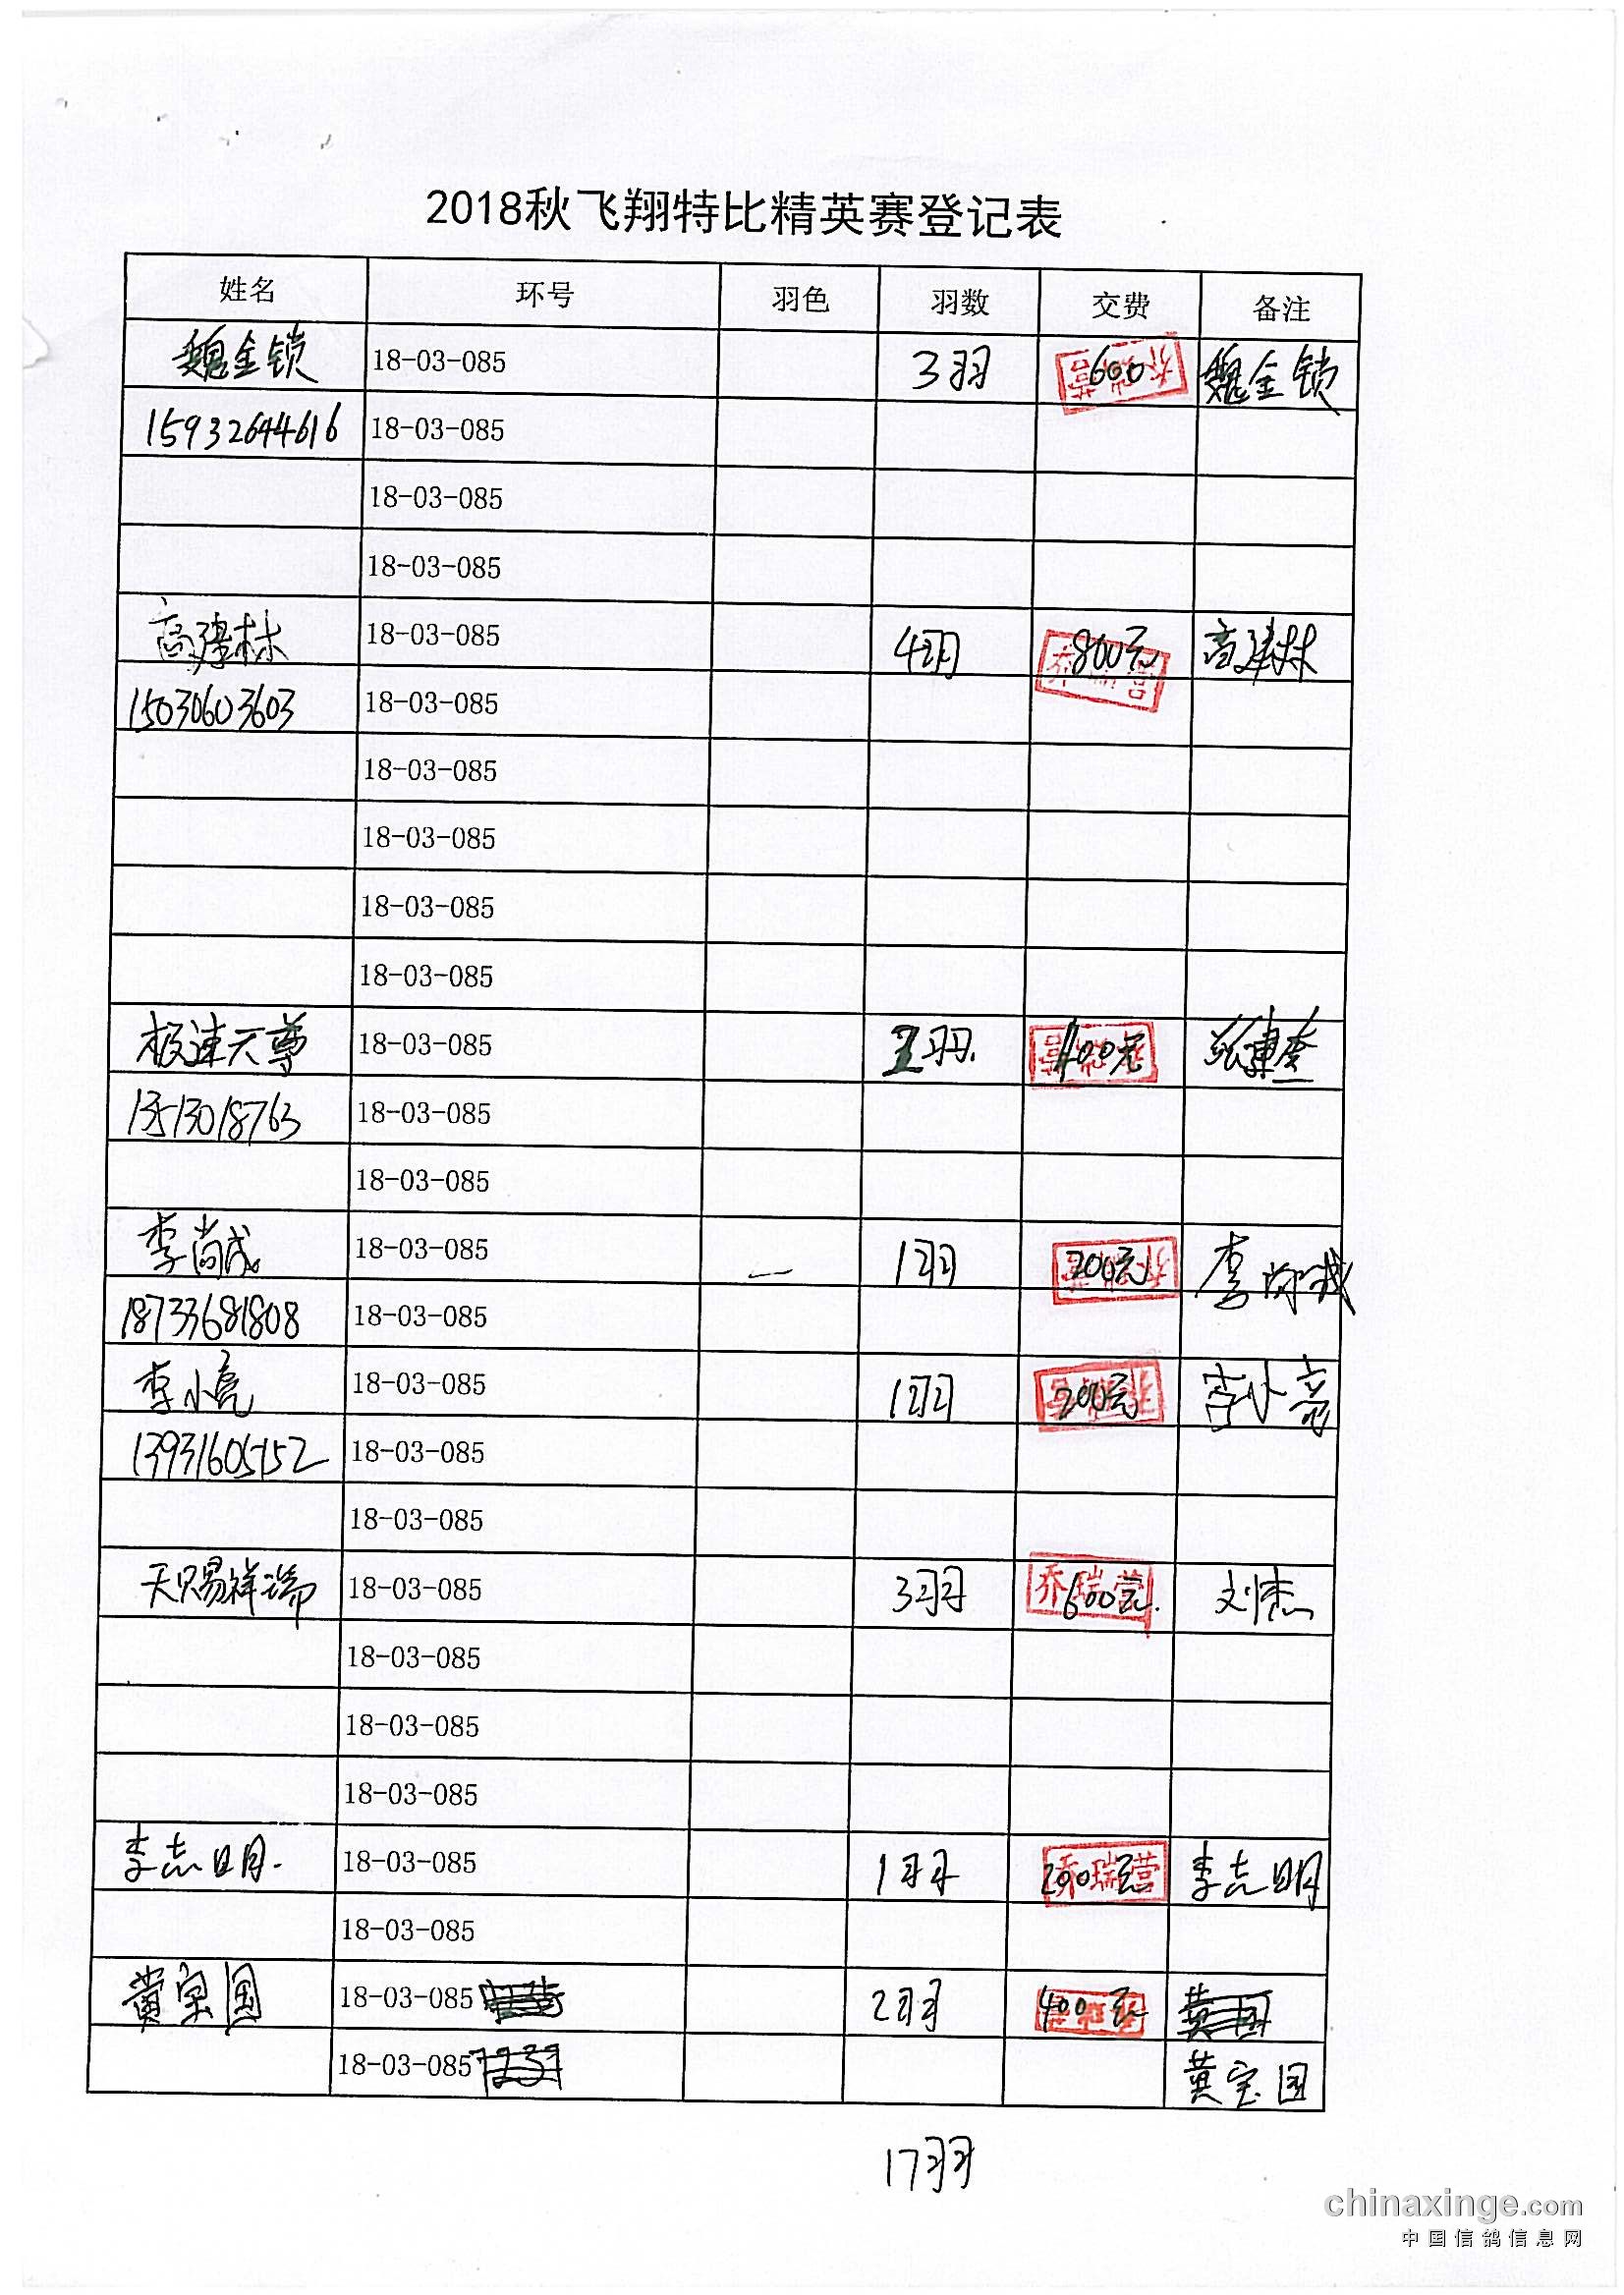 2018秋飞翔特比精英赛登记表
姓名 环号 羽色 羽数 交费 备注
魏金锁 18-03-085 3羽 600 魏金锁
15932644616 18-03-085
18-03-085
18-03-085
高建林 18-03-085 4羽 800元 高建林
15030603603 18-03-085
18-03-085
18-03-085
18-03-085
18-03-085
极速天尊 18-03-085 羽 400元
13513018763 18-03-085
18-03-085
李尚成 18-03-085 一 1羽 200元 李尚成
18733681808 18-03-085
李小亮 18-03-085 1羽 200元 李小亮
13931605152 18-03-085
18-03-085
天赐祥瑞 18-03-085 3羽 乔瑞营 600元 刘杰
18-03-085
18-03-085
18-03-085
李志明 18-03-085 1羽 乔瑞营 200元 李志明
18-03-085
黄宝国 18-03-085 2羽 400元
18-03-085 黄宝国
17羽
chinaxinge.com
中国信鸽信息网